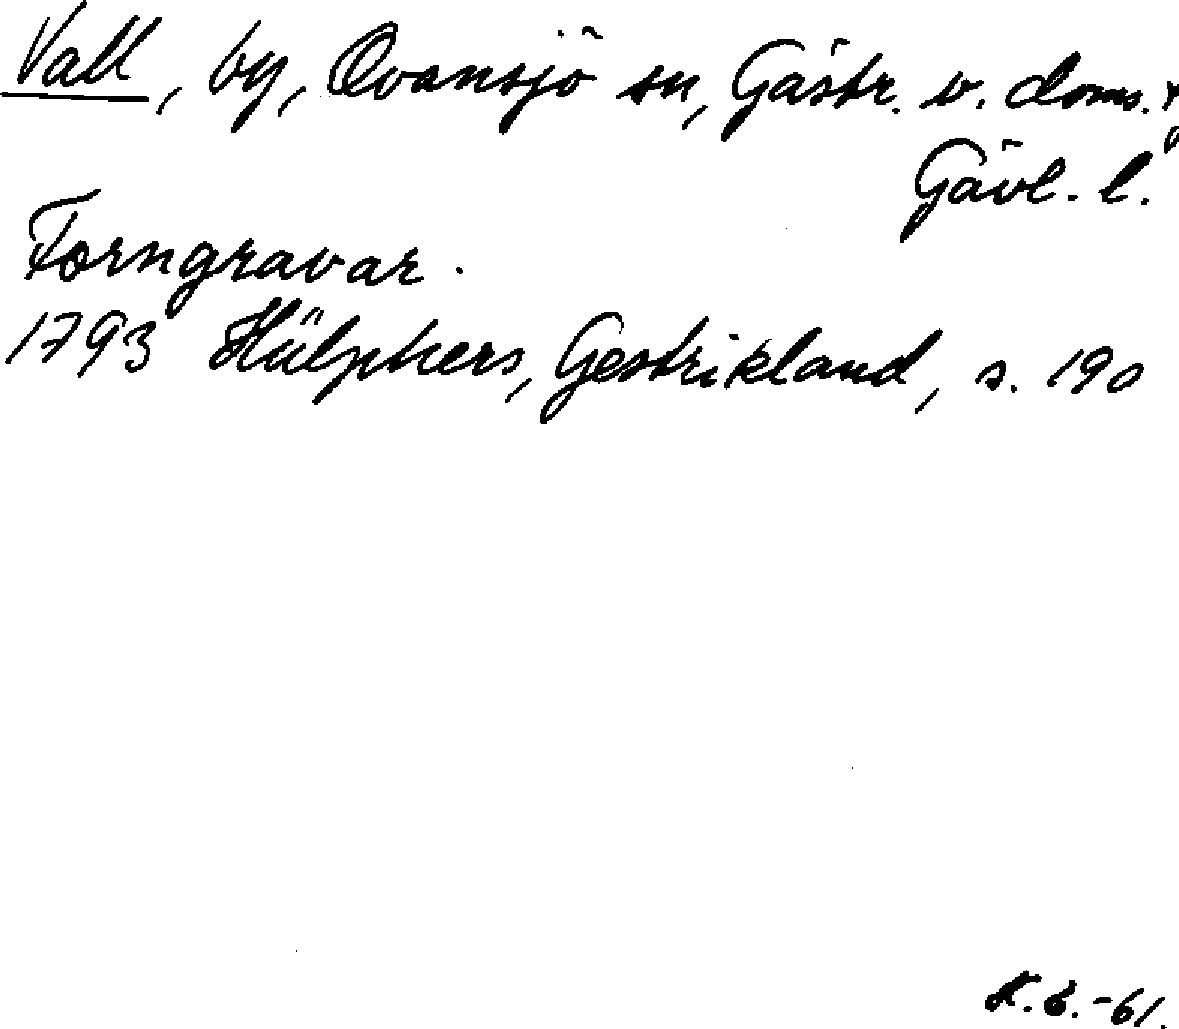 Vall, by, Ovansjö sn, Gästr. v. doms.
Gävl. l.
Forngravar.
1793 Hülphers, Gestrikland, s. 190
-61.